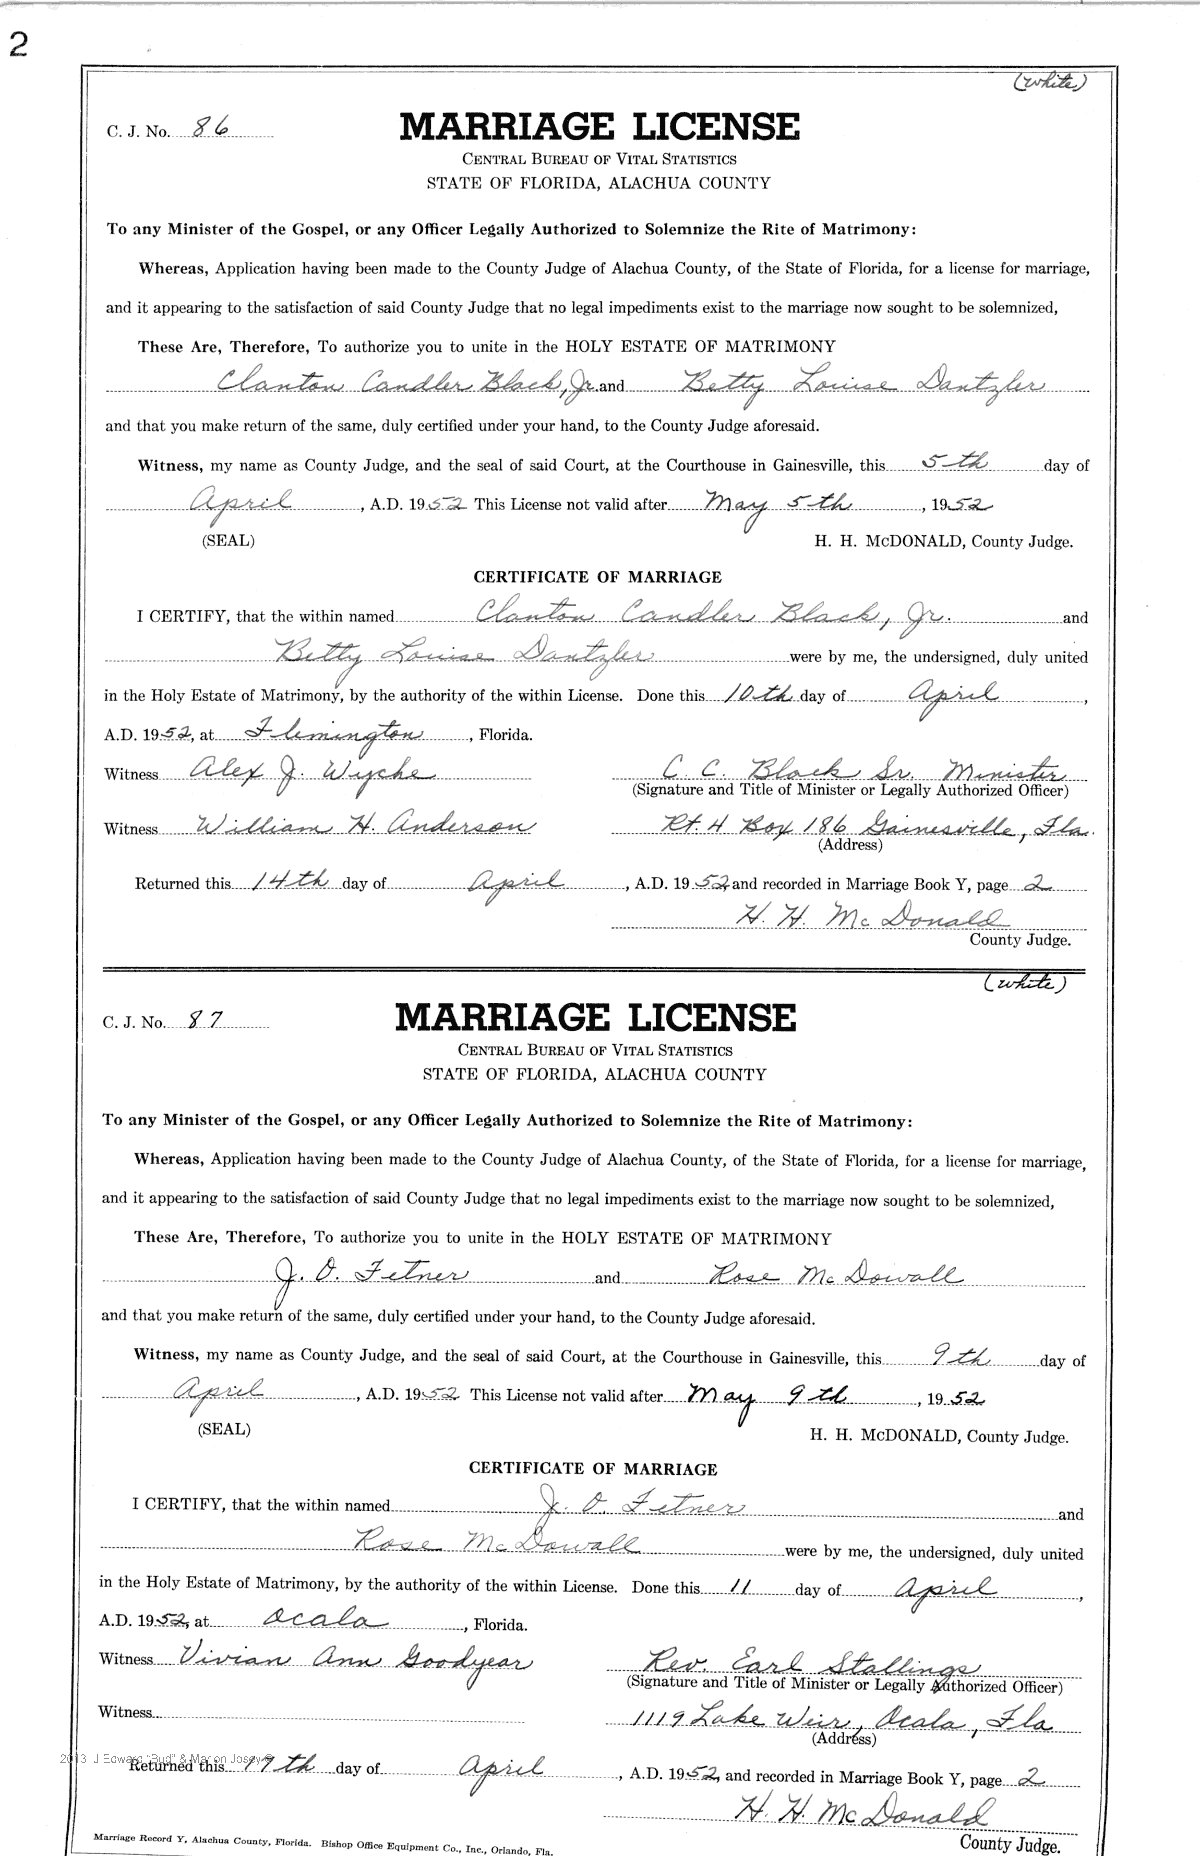 2
(White)
C. J. No. 86
MARRIAGE LICENSE
CENTRAL BUREAU OF VITAL STATISTICS
STATE OF FLORIDA, ALACHUA COUNTY
To any Minister of the Gospel, or any Officer Legally Authorized to Solemnize the Rite of Matrimony:
Whereas, Application having been made to the County Judge of Alachua County, of the State of Florida, for a license for marriage,
and it appearing to the satisfaction of said County Judge that no legal impediments exist to the marriage now sought to be solemnized,
These Are, Therefore, To authorize you to unite in the HOLY ESTATE OF MATRIMONY
Clanton Candler Black, Jr. and Betty Louise Dantzler
and that you make return of the same, duly certified under your hand, to the County Judge aforesaid.
Witness, my name as County Judge, and the seal of said Court, at the Courthouse in Gainesville, this 5th day of
April, A.D. 1952 This License not valid after May 5th, 1952
(SEAL) H. H. McDONALD, County Judge.
CERTIFICATE OF MARRIAGE
I CERTIFY, that the within named Clanton Candler Black, Jr. and
Betty Louise Dantzler were by me, the undersigned, duly united
in the Holy Estate of Matrimony, by the authority of the within License. Done this 10th day of April,
A.D. 1952, at Flemington, Florida.
Witness Alex J. Wyche C. C. Black Sr. Minister
(Signature and Title of Minister or Legally Authorized Officer)
Witness William H. Anderson Rt. 4 Box 186 Gainesville, Fla.
(Address)
Returned this 14th day of April, A.D. 1952 and recorded in Marriage Book Y, page 2
H. H. McDonald
County Judge.
(White)
C. J. No. 87
MARRIAGE LICENSE
CENTRAL BUREAU OF VITAL STATISTICS
STATE OF FLORIDA, ALACHUA COUNTY
To any Minister of the Gospel, or any Officer Legally Authorized to Solemnize the Rite of Matrimony:
Whereas, Application having been made to the County Judge of Alachua County, of the State of Florida, for a license for marriage,
and it appearing to the satisfaction of said County Judge that no legal impediments exist to the marriage now sought to be solemnized,
These Are, Therefore, To authorize you to unite in the HOLY ESTATE OF MATRIMONY
J. O. Fetner and Rose McDowall
and that you make return of the same, duly certified under your hand, to the County Judge aforesaid.
Witness, my name as County Judge, and the seal of said Court, at the Courthouse in Gainesville, this 9th day of
April, A.D. 1952 This License not valid after May 9th, 1952
(SEAL) H. H. McDONALD, County Judge.
CERTIFICATE OF MARRIAGE
I CERTIFY, that the within named J. O. Fetner and
Rose McDowall were by me, the undersigned, duly united
in the Holy Estate of Matrimony, by the authority of the within License. Done this 11 day of April,
A.D. 1952, at Ocala, Florida.
Witness Vivian Ann Goodyear Rev. Earl Stallings
(Signature and Title of Minister or Legally Authorized Officer)
Witness 1119 Lake Weir, Ocala, Fla
(Address)
2013 J Edward "Bud" & Marion Josey ©
Returned this 17th day of April, A.D. 1952, and recorded in Marriage Book Y, page 2
H. H. McDonald
County Judge.
Marriage Record Y, Alachua County, Florida. Bishop Office Equipment Co., Inc., Orlando, Fla.